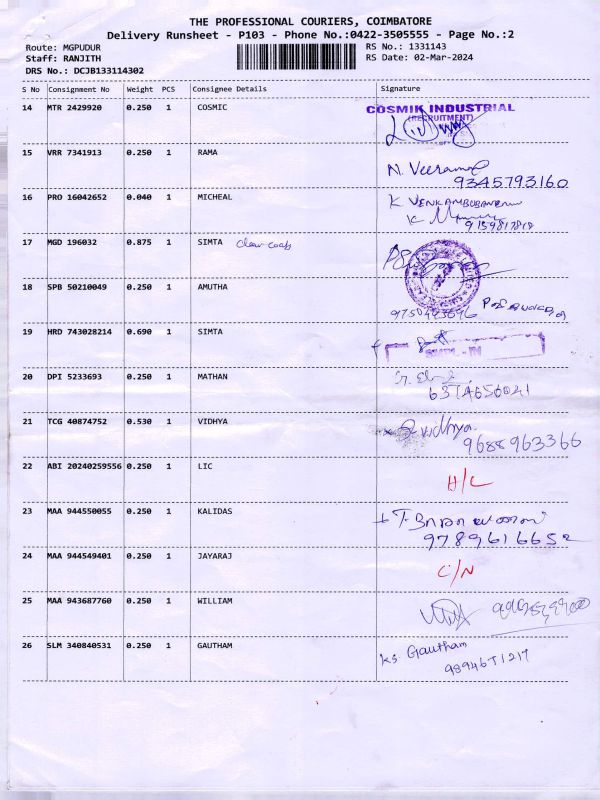 THE PROFESSIONAL COURIERS, COIMBATORE
Delivery Runsheet - P103 - Phone No.:0422-3505555 - Page No.:2
Route: MGPUDUR RS No.: 1331143
Staff: RANJITH RS Date: 02-Mar-2024
DRS No.: DCJB133114302
S No Consignment No Weight PCS Consignee Details Signature
14 MTR 2429920 0.250 1 COSMIC COSMIK INDUSTRIAL
(RECRUITMENT)
15 VRR 7341913 0.250 1 RAMA N. Veeramal
9345793160
16 PRO 16042652 0.040 1 MICHEAL K
K
9159817818
17 MGD 196032 0.875 1 SIMTA
18 SPB 50210049 0.250 1 AMUTHA
19 HRD 743028214 0.690 1 SIMTA
20 DPI 5233693 0.250 1 MATHAN
21 TCG 40874752 0.530 1 VIDHYA Vidhya
9688963366
22 ABI 20240259556 0.250 1 LIC H/C
23 MAA 944550055 0.250 1 KALIDAS
9789616652
24 MAA 944549401 0.250 1 JAYARAJ C/N
25 MAA 943687760 0.250 1 WILLIAM
26 SLM 340840531 0.250 1 GAUTHAM K.S. Gautham
9894671217